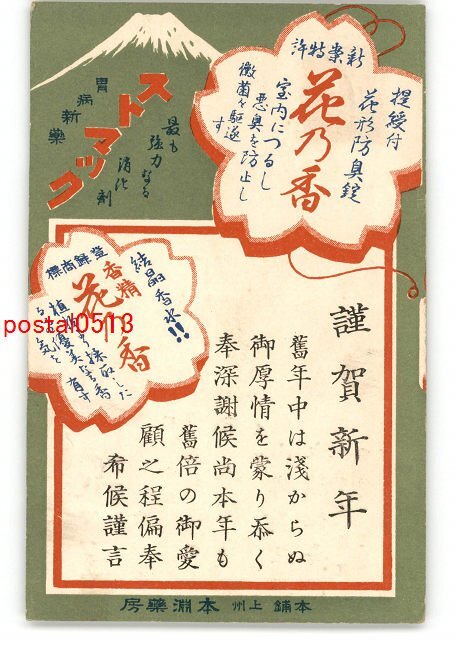 新案特許
提綬付
花形防臭錠
花乃香
室内につるし
悪臭を防止し
黴菌を駆逐す
胃病新薬
ストマックコ
最も
強力なる
消化剤
登録商標
結晶香水!!
香精
花乃香
植物より採取した
る優美なる香
気を有す
謹賀新年
舊年中は淺からぬ
御厚情を蒙り忝く
奉深謝候尚本年も
舊倍の御愛
顧之程偏奉
希候謹言
本舗 上州 本淵藥房
postal0513